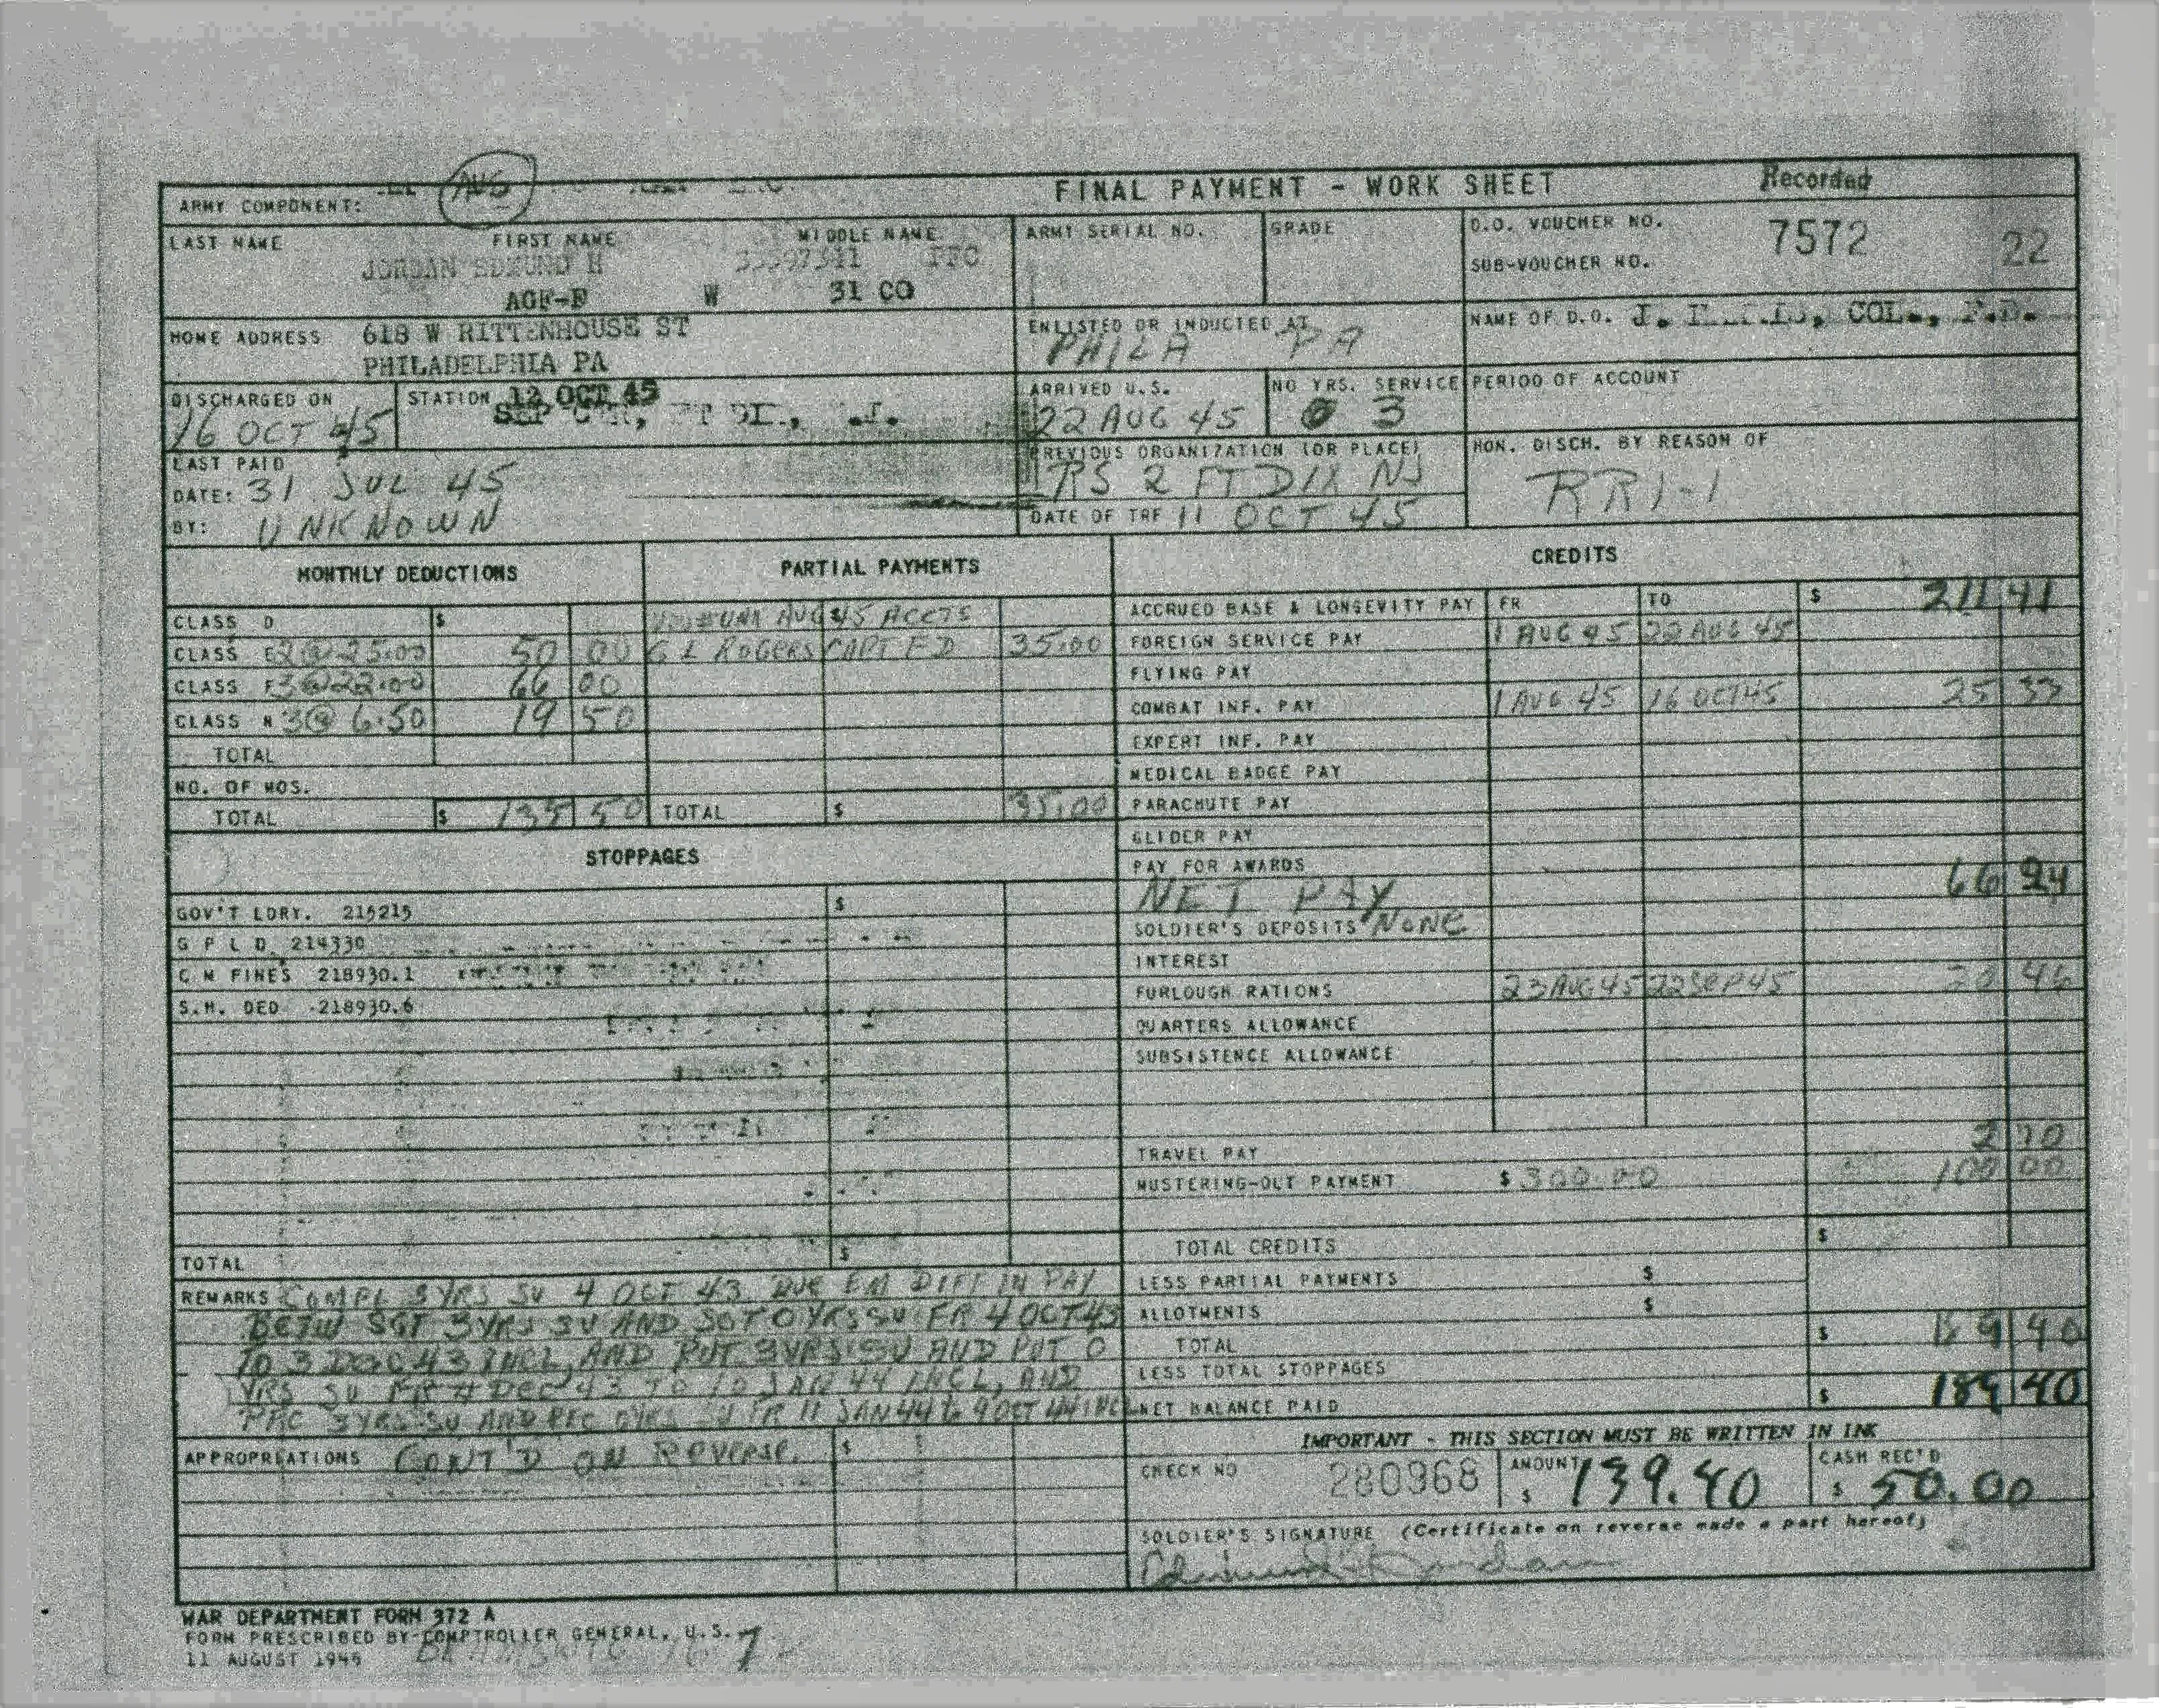 AUS
FINAL PAYMENT - WORK SHEET
Recorded
ARMY COMPONENT:
LAST NAME FIRST NAME MIDDLE NAME ARMY SERIAL NO. GRADE D.O. VOUCHER NO. 7572 22
JORDAN EDMUND H PFC
SUB-VOUCHER NO.
AGF-E W 31 CO
HOME ADDRESS 618 W RITTENHOUSE ST
PHILADELPHIA PA
ENLISTED OR INDUCTED AT
PHILA PA
NAME OF D.O. J. COL., F.D.
DISCHARGED ON
16 OCT 45
STATION 12 OCT 45
SEP
ARRIVED U.S.
22 AUG 45
NO YRS. SERVICE
0 3
PERIOD OF ACCOUNT
LAST PAID
DATE: 31 JUL 45
BY: UNKNOWN
PREVIOUS ORGANIZATION (OR PLACE)
RS 2 FT DIX NJ
DATE OF TRF 11 OCT 45
HON. DISCH. BY REASON OF
RR1-1
MONTHLY DEDUCTIONS
CLASS D $
CLASS E 2 @ 25.00 50 00
CLASS F 3 @ 22.00 66 00
CLASS N 3 @ 6.50 19 50
TOTAL
NO. OF MOS.
TOTAL $ 135 50
PARTIAL PAYMENTS
AUG 45 ACCTS
G L ROGERS CAPT FD 35.00
TOTAL $ 35.00
CREDITS
ACCRUED BASE & LONGEVITY PAY FR TO $ 211 41
FOREIGN SERVICE PAY 1 AUG 45 22 AUG 45
FLYING PAY
COMBAT INF. PAY 1 AUG 45 16 OCT 45 25 33
EXPERT INF. PAY
MEDICAL BADGE PAY
PARACHUTE PAY
GLIDER PAY
PAY FOR AWARDS
NET PAY 66 24
SOLDIER'S DEPOSITS NONE
INTEREST
FURLOUGH RATIONS 23 AUG 45 22 SEP 45 20 46
QUARTERS ALLOWANCE
SUBSISTENCE ALLOWANCE
TRAVEL PAY 2 70
MUSTERING-OUT PAYMENT $ 300.00 100 00
TOTAL CREDITS $
LESS PARTIAL PAYMENTS $
ALLOTMENTS $
TOTAL $ 189 40
LESS TOTAL STOPPAGES
NET BALANCE PAID $ 189 40
STOPPAGES
GOV'T LDRY. 215215 $
G P L D. 214330
C M FINES 218930.1
S.H. DED 218930.6
TOTAL $
REMARKS COMPL 3 YRS SV 4 OCT 43 DUE EM DIFF IN PAY
BETW SGT 3 YRS SV AND SGT 0 YRS SV FR 4 OCT 43
TO 3 DEC 43 INCL, AND PVT 3 YRS SV AND PVT 0
YRS SV FR 4 DEC 43 TO 10 JAN 44 INCL, AND
PFC 3 YRS SV AND PFC 0 YRS SV FR 11 JAN 44 to 9 OCT 44 INCL
APPROPRIATIONS CONT'D ON REVERSE. $
IMPORTANT - THIS SECTION MUST BE WRITTEN IN INK
CHECK NO 280968 AMOUNT $ 139.40 CASH REC'D $ 50.00
SOLDIER'S SIGNATURE (Certificate on reverse made a part hereof)
Edmund H Jordan
WAR DEPARTMENT FORM 372 A
FORM PRESCRIBED BY COMPTROLLER GENERAL, U.S.
11 AUGUST 1945